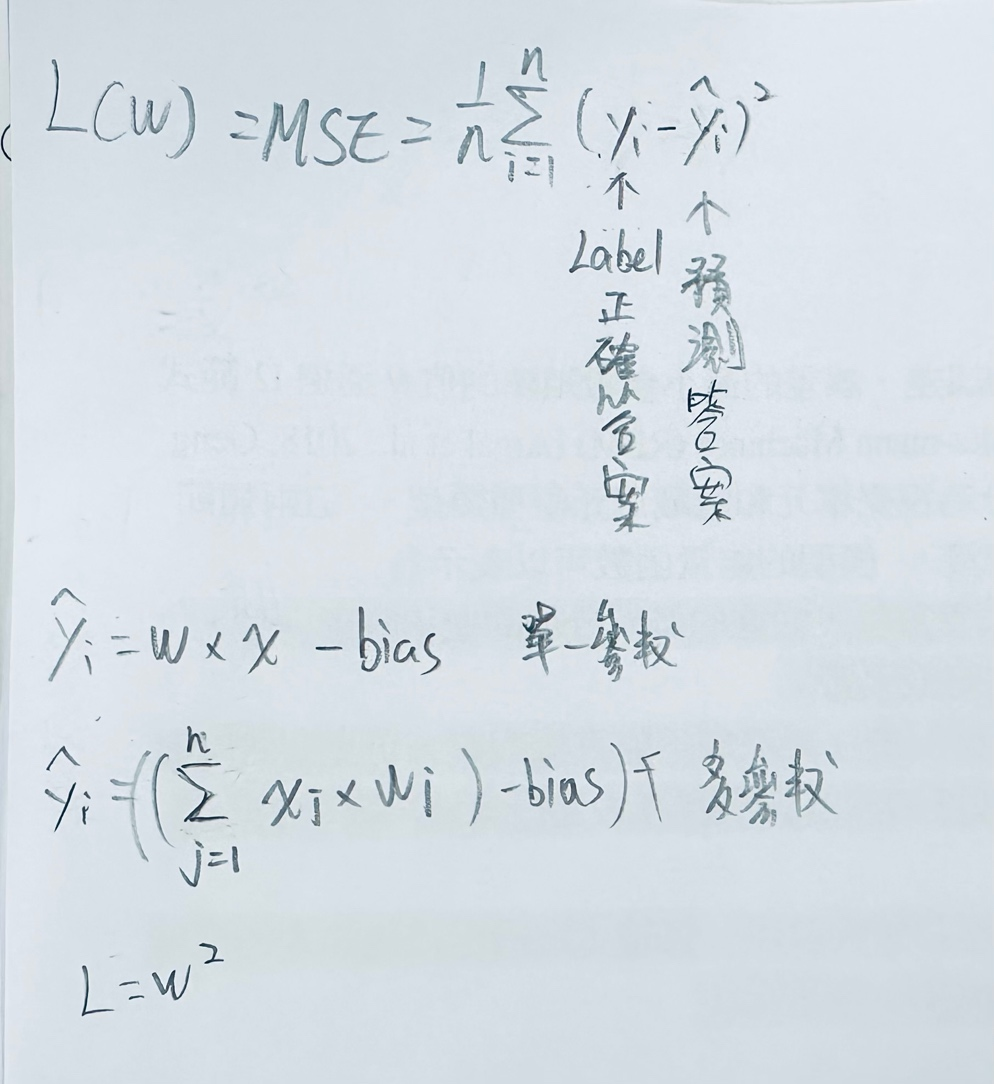 L(W) = MSE = \frac{1}{n} \sum_{i=1}^{n} (y_i - \hat{y}_i)^2
↑ ↑
Label 正確答案
預測答案
\hat{y}_i = w × x - bias 單一參数
\hat{y}_i = ((\sum_{j=1}^{n} x_j × w_j) - bias) 多參数
L = w^2